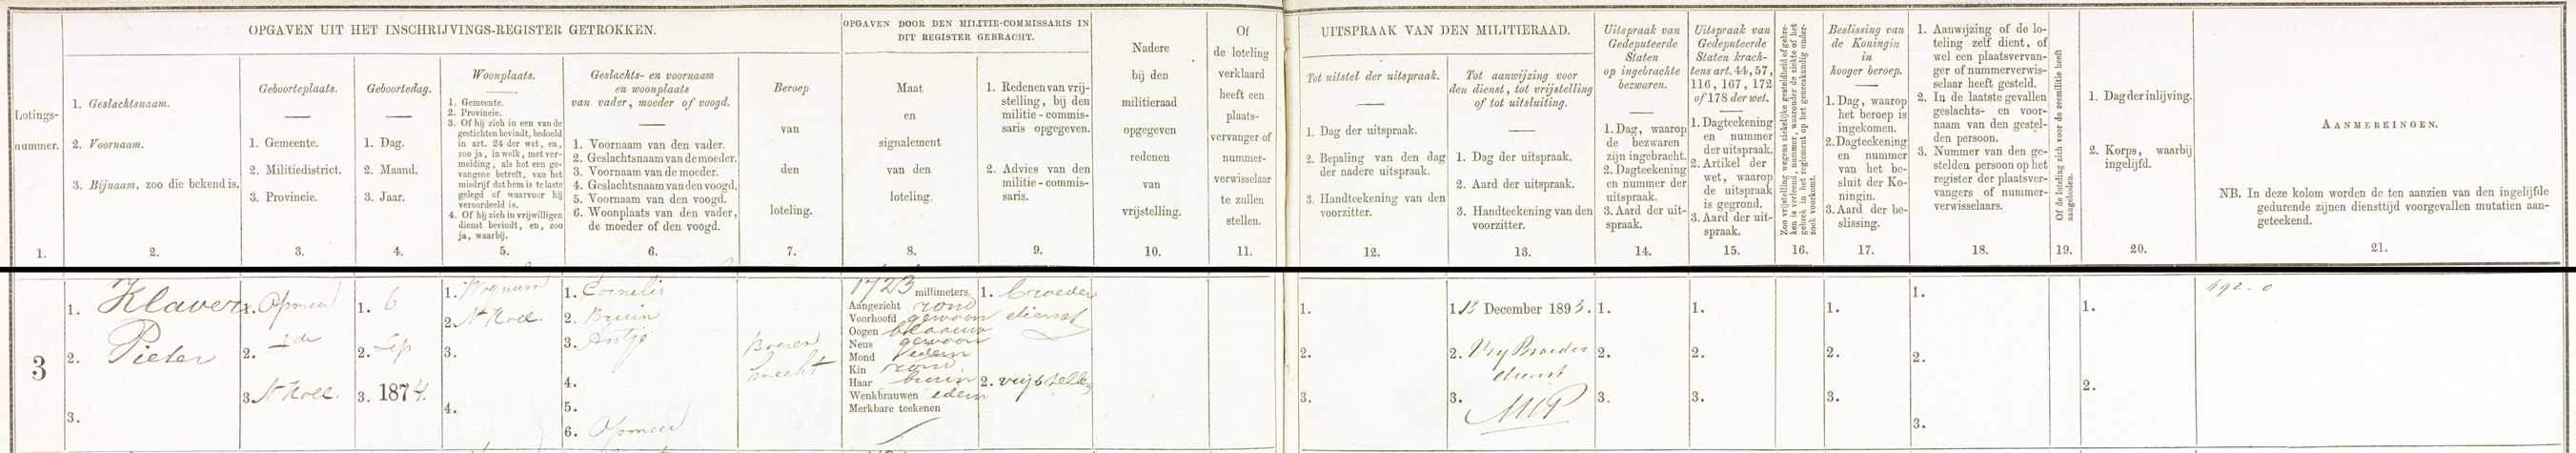 OPGAVEN UIT HET INSCHRIJVINGS-REGISTER GETROKKEN.
Lotings-
nummer.
1.
1. Geslachtsnaam.
2. Voornaam.
3. Bijnaam, zoo die bekend is.
2.
Geboorteplaats.
1. Gemeente.
2. Militiedistrict.
3. Provincie.
3.
Geboortedag.
1. Dag.
2. Maand.
3. Jaar.
4.
Woonplaats.
1. Gemeente.
2. Provincie.
3. Of hij zich in een van de
gestichten bevindt, bedoeld
in art. 24 der wet, en,
zoo ja, in welk, met ver-
melding, als het een ge-
vangene betreft, van het
misdrijf dat hem is te laste
gelegd of waarvoor hij
veroordeeld is.
4. Of hij zich in vrijwilligen
dienst bevindt, en, zoo
ja, waarbij.
5.
Geslachts- en voornaam
en woonplaats
van vader, moeder of voogd.
1. Voornaam van den vader.
2. Geslachtsnaam van de moeder.
3. Voornaam van de moeder.
4. Geslachtsnaam van den voogd.
5. Voornaam van den voogd.
6. Woonplaats van den vader,
de moeder of den voogd.
6.
Beroep
van
den
loteling.
7.
OPGAVEN DOOR DEN MILITIE-COMMISSARIS IN
DIT REGISTER GEBRACHT.
Maat
en
signalement
van den
loteling.
8.
1. Redenen van vrij-
stelling, bij den
militie-commis-
saris opgegeven.
2. Advies van den
militie-commis-
saris.
9.
Nadere
bij den
militieraad
opgegeven
redenen
van
vrijstelling.
10.
Of
de loteling
verklaard
heeft een
plaats-
vervanger of
nummer-
verwisselaar
te zullen
stellen.
11.
UITSPRAAK VAN DEN MILITIERAAD.
Tot uitstel der uitspraak.
1. Dag der uitspraak.
2. Bepaling van den dag
der nadere uitspraak.
3. Handteekening van den
voorzitter.
12.
Tot aanwijzing voor
den dienst, tot vrijstelling
of tot uitsluiting.
1. Dag der uitspraak.
2. Aard der uitspraak.
3. Handteekening van den
voorzitter.
13.
Uitspraak van
Gedeputeerde
Staten
op ingebrachte
bezwaren.
1. Dag, waarop
de bezwaren
zijn ingebracht.
2. Dagteekening
en nummer der
uitspraak.
3. Aard der uit-
spraak.
14.
Uitspraak van
Gedeputeerde
Staten krach-
tens art. 44, 57,
116, 167, 172
of 178 der wet.
1. Dagteekening
en nummer
der uitspraak.
2. Artikel der
wet, waarop
de uitspraak
is gegrond.
3. Aard der uit-
spraak.
15.
Zoo vrijstelling wegens ziekelijke gesteldheid of gebre-
ken is verleend, nummer, waaronder de ziekte of het
gebrek in het reglement op het geneeskundig onder-
zoek voorkomt.
16.
Beslissing van
de Koningin
in
hooger beroep.
1. Dag, waarop
het beroep is
ingekomen.
2. Dagteekening
en nummer
van het be-
sluit der Ko-
ningin.
3. Aard der be-
slissing.
17.
1. Aanwijzing of de lo-
teling zelf dient, of
wel een plaatsvervan-
ger of nummerverwis-
selaar heeft gesteld.
2. In de laatste gevallen
geslachts- en voor-
naam van den gestel-
den persoon.
3. Nummer van den ge-
stelden persoon op het
register der plaatsver-
vangers of nummer-
verwisselaars.
18.
Of de loteling zich voor de zeemilitie heeft
aangeboden.
19.
1. Dag der inlijving.
2. Korps, waarbij
ingelijfd.
20.
AANMERKINGEN.
NB. In deze kolom worden de ten aanzien van den ingelijfde
gedurende zijnen diensttijd voorgevallen mutatien aan-
geteekend.
21.
3
1. Klaver
2. Pieter
3.
1. Opmeer
2. Ide
3. N Holl.
1. 6
2. Sep
3. 1874.
1. Wognum
2. N Holl.
3.
4.
1. Cornelis
2. Bruin
3. Antje
4.
5.
6. Opmeer
Boeren
knecht
1723 millimeters.
Aangezicht rond
Voorhoofd gewoon
Oogen blaauw
Neus gewoon
Mond idem
Kin rond
Haar bruin
Wenkbrauwen idem
Merkbare teekenen
1. broeder
dienst
2. vrijstelling
1.
2.
3.
1. 13 December 1893.
2. Vrij Broeder
dienst
3.
1.
2.
3.
1.
2.
3.
1.
2.
3.
1.
2.
3.
1.
2.
692-0